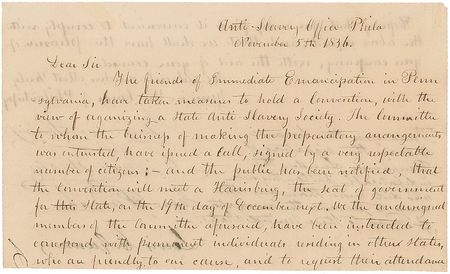 Anti-Slavery Office Phila
November 5th 1836.
Dear Sir
The friends of Immediate Emancipation in Penn
sylvania, have taken measures to hold a Convention, with the
view of organizing a State Anti Slavery Society. The Committee
to whom the buisness of making the preparatory arrangements
was intrusted, have issued a Call, signed by a very respectable
number of citizens; – and the public has been notified, that
the Convention will meet a Harrisburg, the seat of government
for this State, on the 19th day of December next. We the undersigned
members of the Committee aforesaid, have been instructed to
correspond with prominent individuals residing in other States,
who are friendly to our cause, and to request their attendance